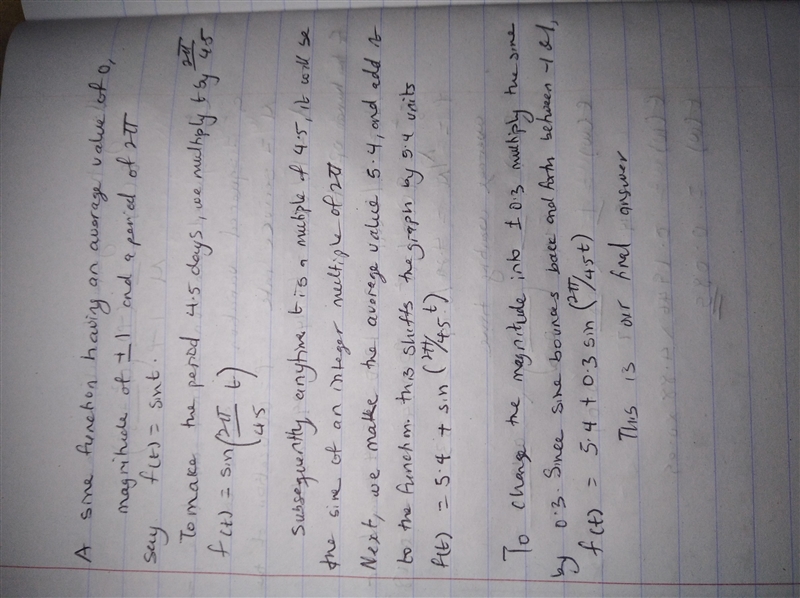 A sine function having an average value of 0,
magnitude of ±1 and a period of 2π
say f(t) = sint.
To make the period 4.5 days, we multiply t by 2π/4.5
f(t) = sin(2π/4.5 t)
Subsequently, anytime t is a multiple of 4.5, it will be
the sine of an integer multiple of 2π
Next, we make the average value 5.4, and add it
to the function. this shifts the graph by 5.4 units
f(t) = 5.4 + sin (2π/4.5 t)
To change the magnitude into ± 0.3 multiply the sine
by 0.3. Since sine bounces back and forth between -1 & 1,
f(t) = 5.4 + 0.3 sin (2π/4.5 t)
This is our final answer